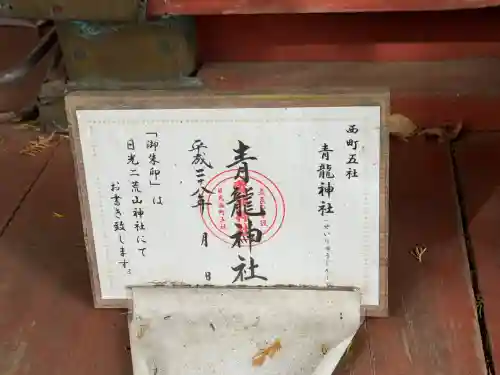 西町五社
青龍神社(せいりゅうじんじゃ)
青龍神社
平成二十八年 月 日
「御朱印」は
日光二荒山神社にて
お書き致します。